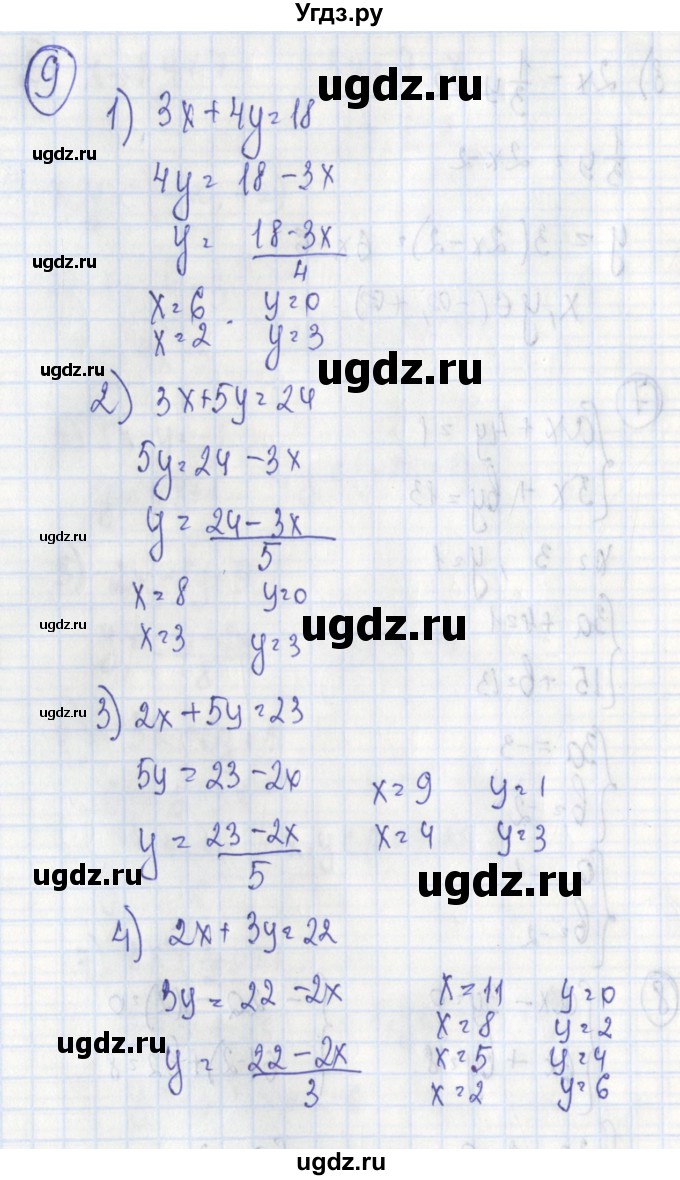 Угдз.ру
9
ugdz.ru
1) 3x + 4y = 18
ugdz.ru
4y = 18 - 3x
ugdz.ru
y = (18 - 3x)/4
x = 6 y = 0
x = 2 . y = 3
ugdz.ru ugdz.ru
2) 3x + 5y = 24
5y = 24 - 3x
ugdz.ru
y = (24 - 3x)/5
x = 8 y = 0
ugdz.ru ugdz.ru
x = 3 y = 3
ugdz.ru
3) 2x + 5y = 23
5y = 23 - 2x
x = 9 y = 1
y = (23 - 2x)/5
x = 4 y = 3
ugdz.ru ugdz.ru
4) 2x + 3y = 22
3y = 22 - 2x
x = 11 y = 0
x = 8 y = 2
ugdz.ru
y = (22 - 2x)/3
x = 5 y = 4
x = 2 y = 6
ugdz.ru
ugdz.ru